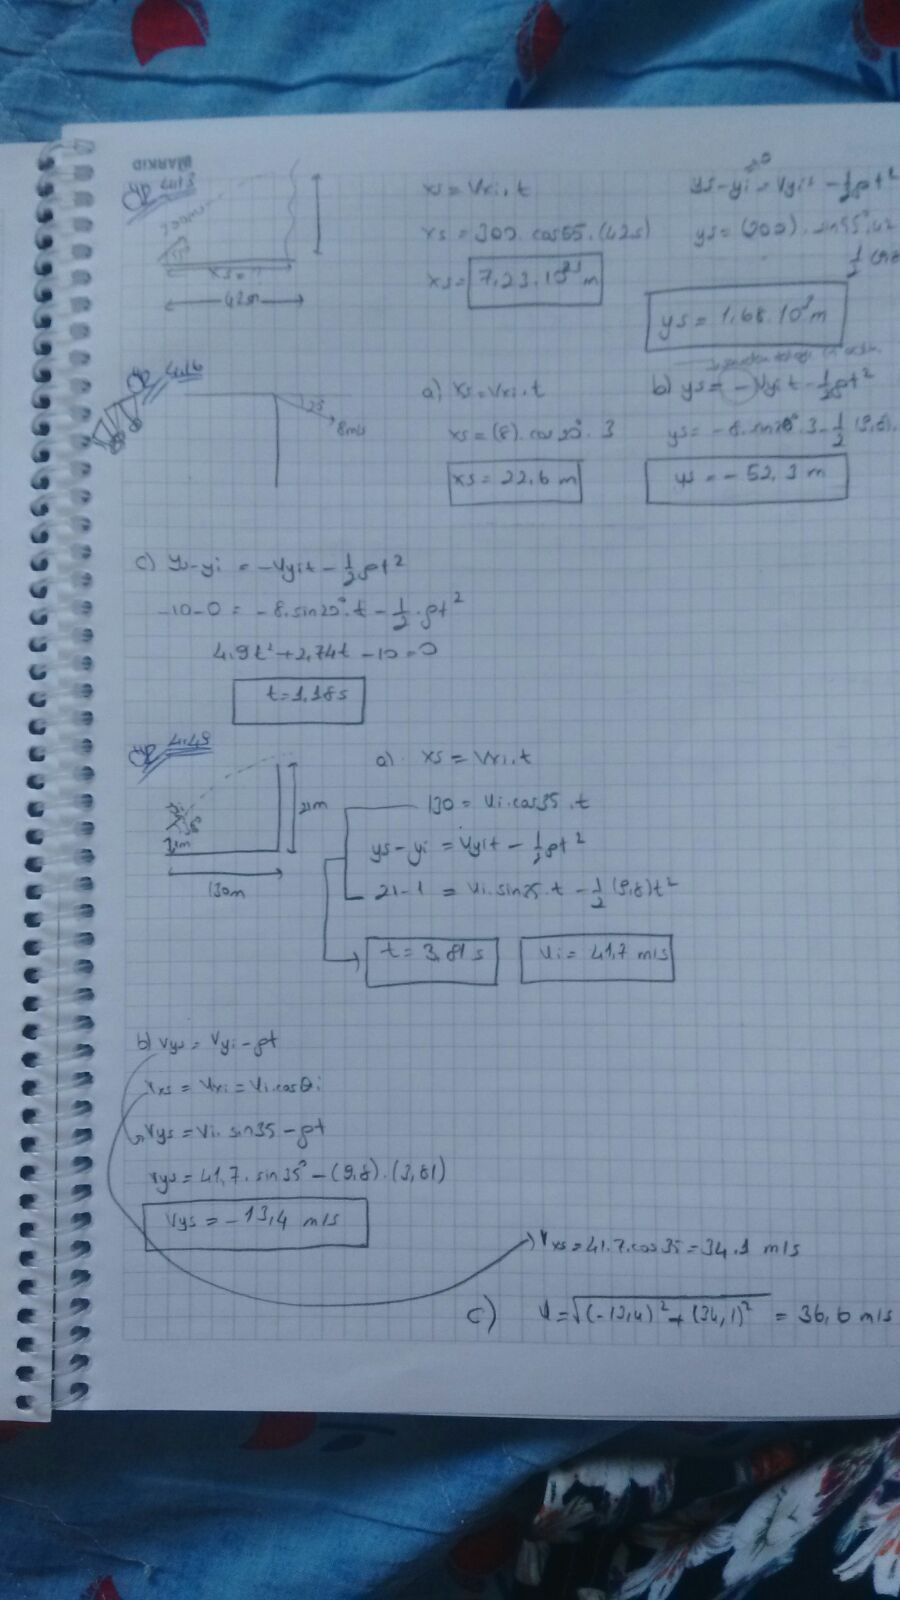 MARKID
4.13
300 m/s
xs = ?
42s
xs = Vxi.t
xs = 300.cos55.(42s)
xs = 7,23.10³ m
ys-yi = Vyit - ½gt²
ys = (300).sin55°.42
½(9,8
ys = 1,68.10³ m
4.16
8m/s
a) xs = Vxi.t
xs = (8).cos20°.3
xs = 22,6 m
b) ys = -Vyit - ½gt²
ys = -8.sin20°.3 - ½(9,8).
ys = -52,3 m
c) ys-yi = -Vyit - ½gt²
-10-0 = -8.sin20°.t - ½.gt²
4,9t²+2,74t-10=0
t=1,18s
4.49
21m
130m
a) xs = Vxi.t
130 = Vi.cos35.t
ys-yi = Vyit - ½gt²
21-1 = Vi.sin35.t - ½(9,8)t²
t = 3,81 s
Vi = 41,7 m/s
b) Vys = Vyi-gt
Vxs = Vxi = Vi.cosθi
Vys = Vi.sin35-gt
Vys = 41,7.sin35°-(9,8).(3,81)
Vys = -13,4 m/s
Vxs = 41.7.cos35 = 34.1 m/s
c) V = √(-13,4)²+(34,1)² = 36,6 m/s